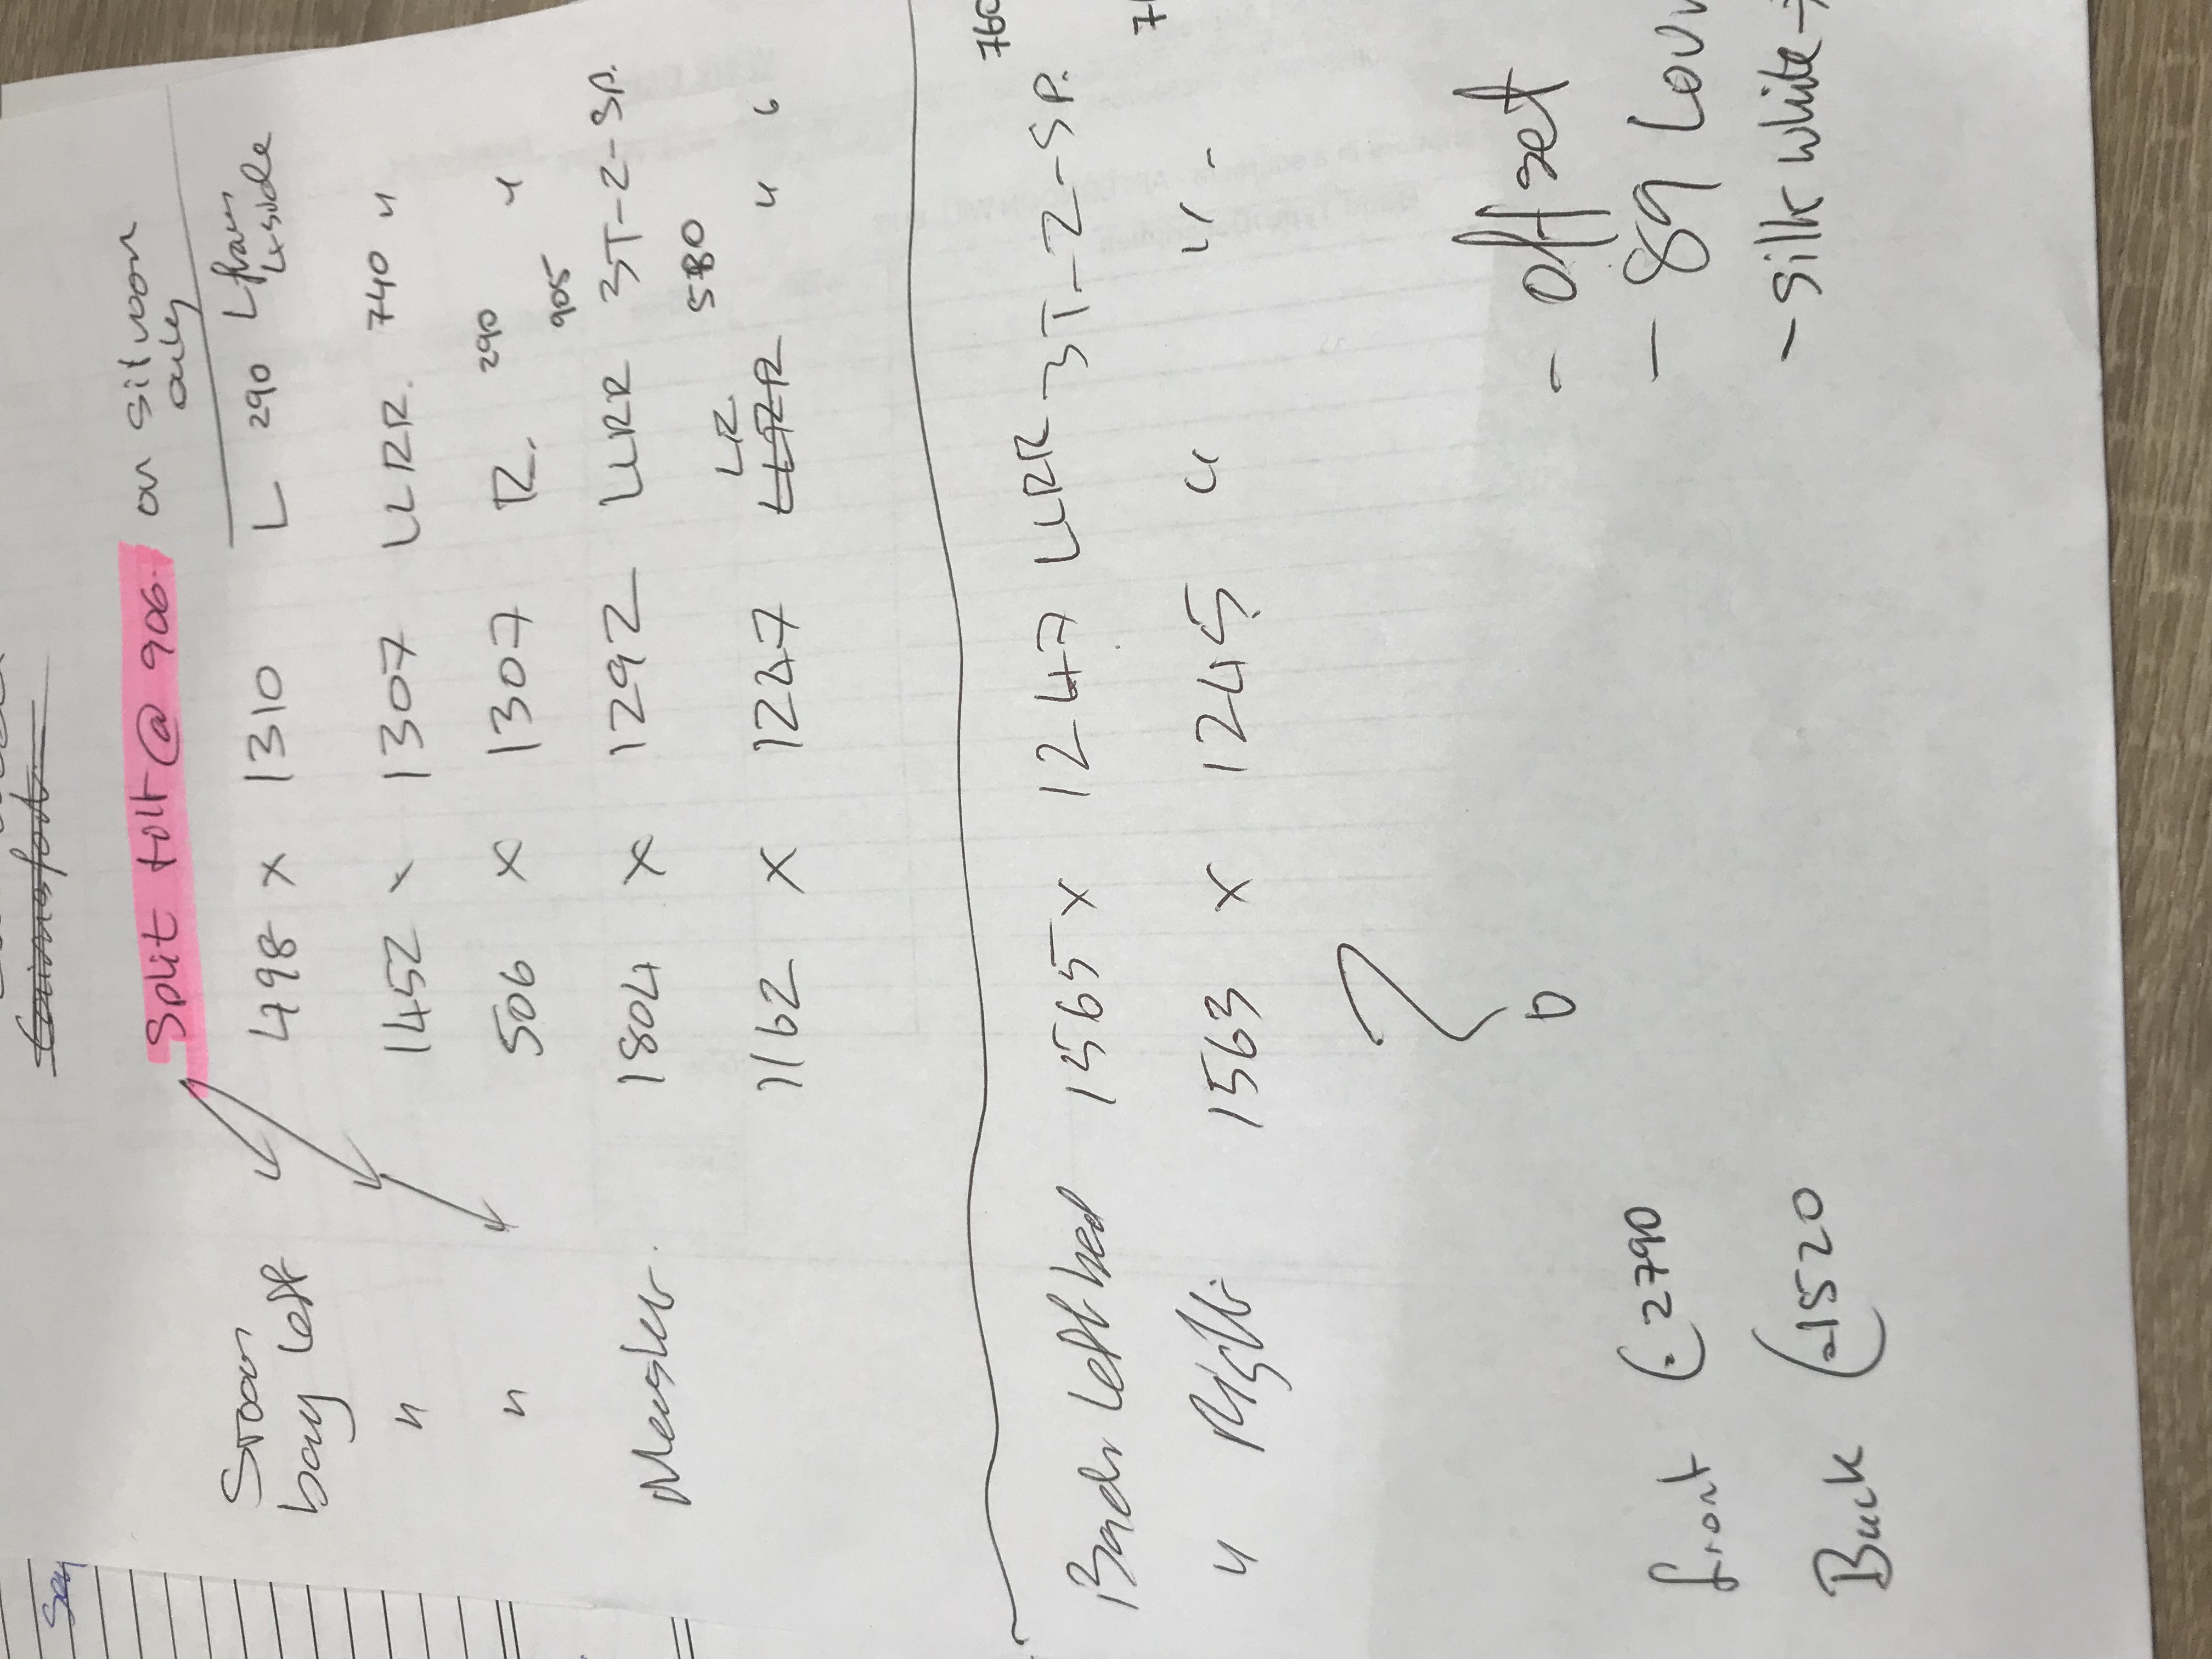 Split tilt @ 906. on sit room
only
Sroom 498 x 1310 L 290 L frame
bay left 4 side
" 1452 x 1307 LLRR. 740 "
" 506 x 1307 R. 290 "
905
Master. 1804 x 1292 LLRR 3T-2-SP.
580
LR
1162 x 1247 " "
760
Back Left bed 1565 x 1247 LLRR 3T-2-SP.
" Right 1563 x 1245 " " -
D
- Off set
front (-2790 - 89 Louv
Back (-1520 - Silk white →